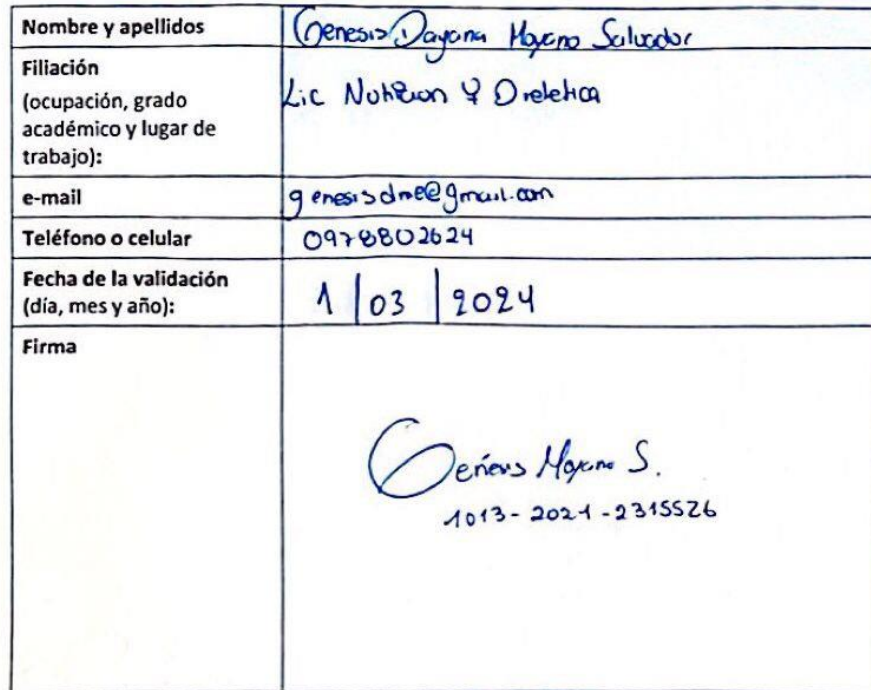 Nombre y apellidos
Genesis Dayana Moyano Salvador
Filiación
(ocupación, grado
académico y lugar de
trabajo):
Lic Nutricion Y Dietetica
e-mail
genesisdme@gmail.com
Teléfono o celular
0978802624
Fecha de la validación
(día, mes y año):
1 | 03 | 2024
Firma
Genesis Moyano S.
1013-2021-2315526